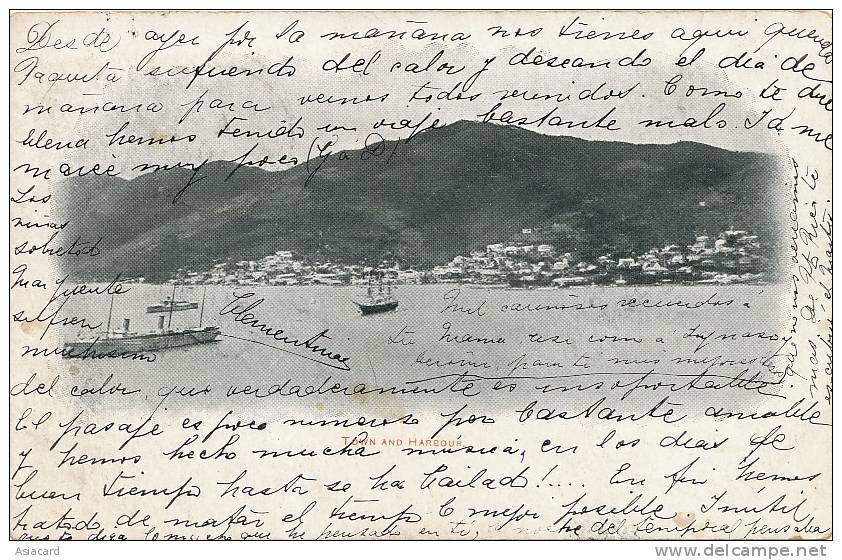 Desde ayer por la mañana nos tienes aqui querida
Paquita sufriendo del calor y deseando el dia de
mañana para vernos todos reunidos. Como te dice
Elena hemos tenido un viaje bastante malo. Yo me
mareé muy poco (G. á D.)
Las
niñas
sobretod
Mar
sufren
muchisim
del calor, que verdaderamente es insoportable.
El pasaje es poco numeroso pero bastante amable
y hemos hecho mucha musica, en los dias de
buen tiempo hasta se ha bailado!.... En fin hemos
tratado de matar el tiempo lo mejor posible. Inútil
que te diga lo mucho que he pensado en tí, la noche del temporal pensaba
que no nos veriamos
mas. De
escribiré el
Clementina
Mil cariñosos recuerdos á
tu Mama, asi como á Ignacio y
para tí mis mejores
TOWN AND HARBOUR.
Asiacard
http://www.delcampe.net